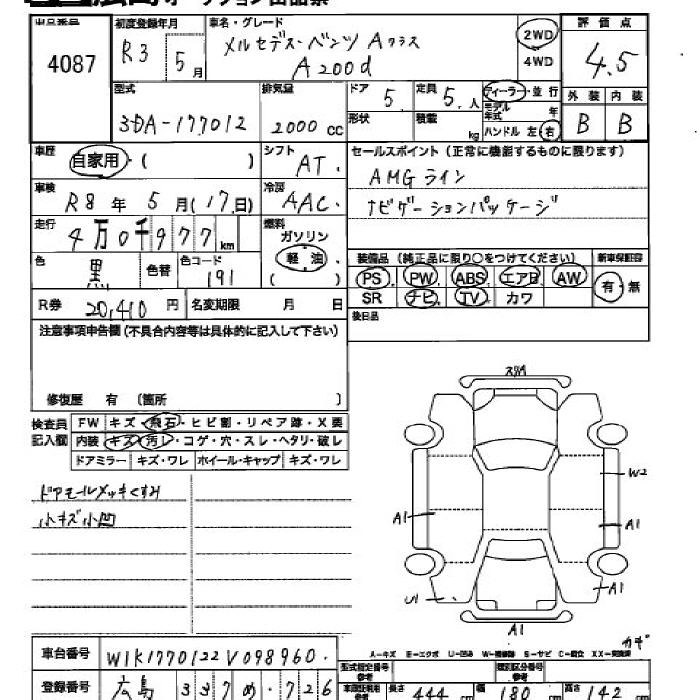 出品番号 4087
初度登録年月 R3 5月
車名・グレード メルセデス・ベンツ Aクラス
A200d
2WD
4WD
評価点 4.5
型式 3DA-177012
排気量 2000 cc
ドア 5
定員 5.人
ディーラー・並行
モデル年式 年
形状
積載 kg
ハンドル 左・右
外装 B 内装 B
車歴 自家用・( )
シフト AT.
セールスポイント(正常に機能するものに限ります)
AMGライン
ナビゲーションパッケージ
車検 R8年 5月(17日)
冷房 AAC.
走行 4万0千977km
燃料 ガソリン
軽油、
( )
色 黒 色替 色コード 191
装備品(純正品に限り○をつけてください) 新車保証書
PS PW ABS エアB AW 有・無
SR ナビ TV カワ
R券 20,410円 名変期限 月 日
後日品
注意事項申告欄(不具合内容等は具体的に記入して下さい)
修復歴 有 〔箇所 〕
検査員記入欄
FW キズ・飛石・ヒビ割・リペア跡・X要
内装 キズ・汚レ・コゲ・穴・スレ・ヘタリ・破レ
ドアミラー キズ・ワレ ホイール・キャップ キズ・ワレ
ドアモールメッキくすみ
小キズ小凹
スリA
W2
A1
A1
U1
A1
A1
車台番号 W1K1770122V098960.
A-キズ E-エクボ U-凹み W-補修跡 S-サビ C-腐食 XX-交換済
カギ
型式指定番号 参考
類別区分番号 参考
登録番号 広島 337 め・726
長さ 444 cm 幅 180 cm 高さ 142 cm